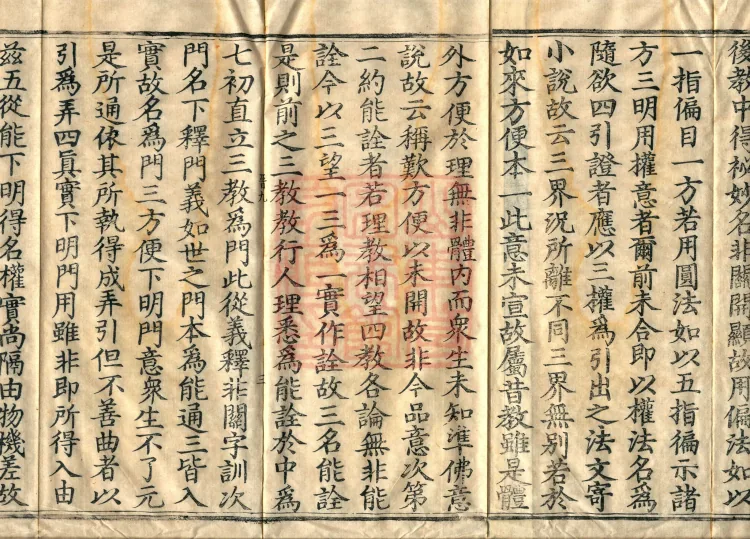 後教中得祕妙名非關開顯故用偏法如以
一指偏目一方若用圓法如以五指徧示諸
方三明用權意者爾前未合即以權法名為
隨欲四引證者應以三權為引出之法文寄
小說故云三界況所離不同三界無別若於
如來方便本一此意未宣故屬昔教雖是體
外方便於理無非體內而衆生未知準佛意
說故云稱歎方便以未開故非今品意次第
二約能詮者若理教相望四教各論無非能
詮今以三望一三為一實作詮故三名能詮
是則前之三教教行人理悉為能詮於中為
七初直立三教為門此從義釋非關字訓次
門名下釋門義如世之門本為能通三皆入
實故名為門三方便下明門意衆生不了元
是所通依其所執得成弄引但不善曲者以
引為弄四真實下明門用雖非即所得入由
茲五從能下明得名權實尚隔由物機差故